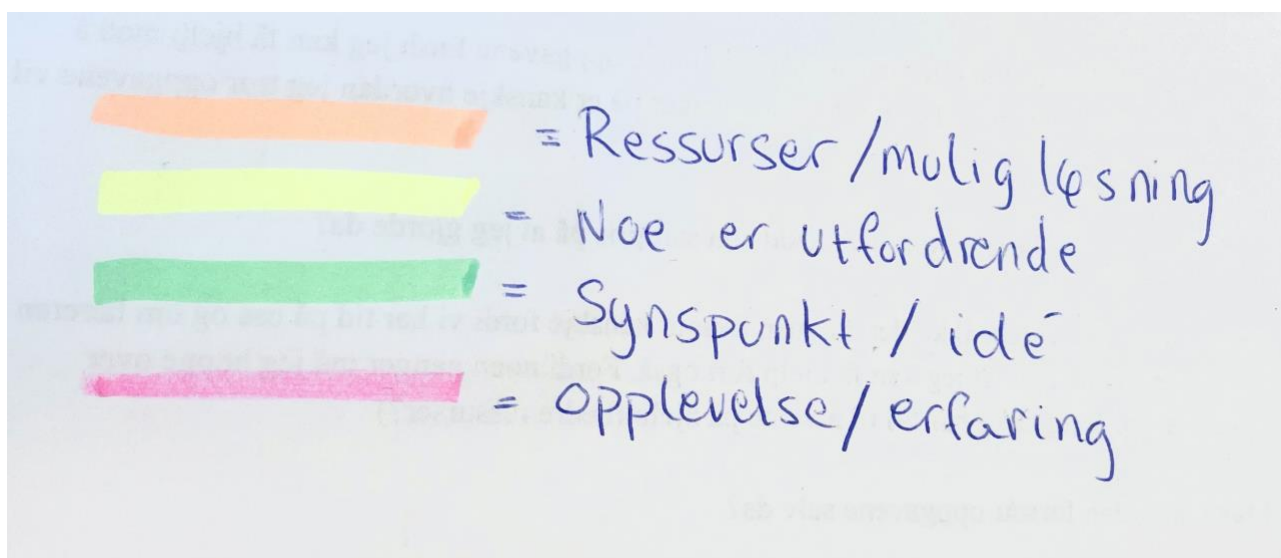 = Ressurser/mulig løsning
= Noe er utfordrende
= Synspunkt / idé
= Opplevelse/erfaring